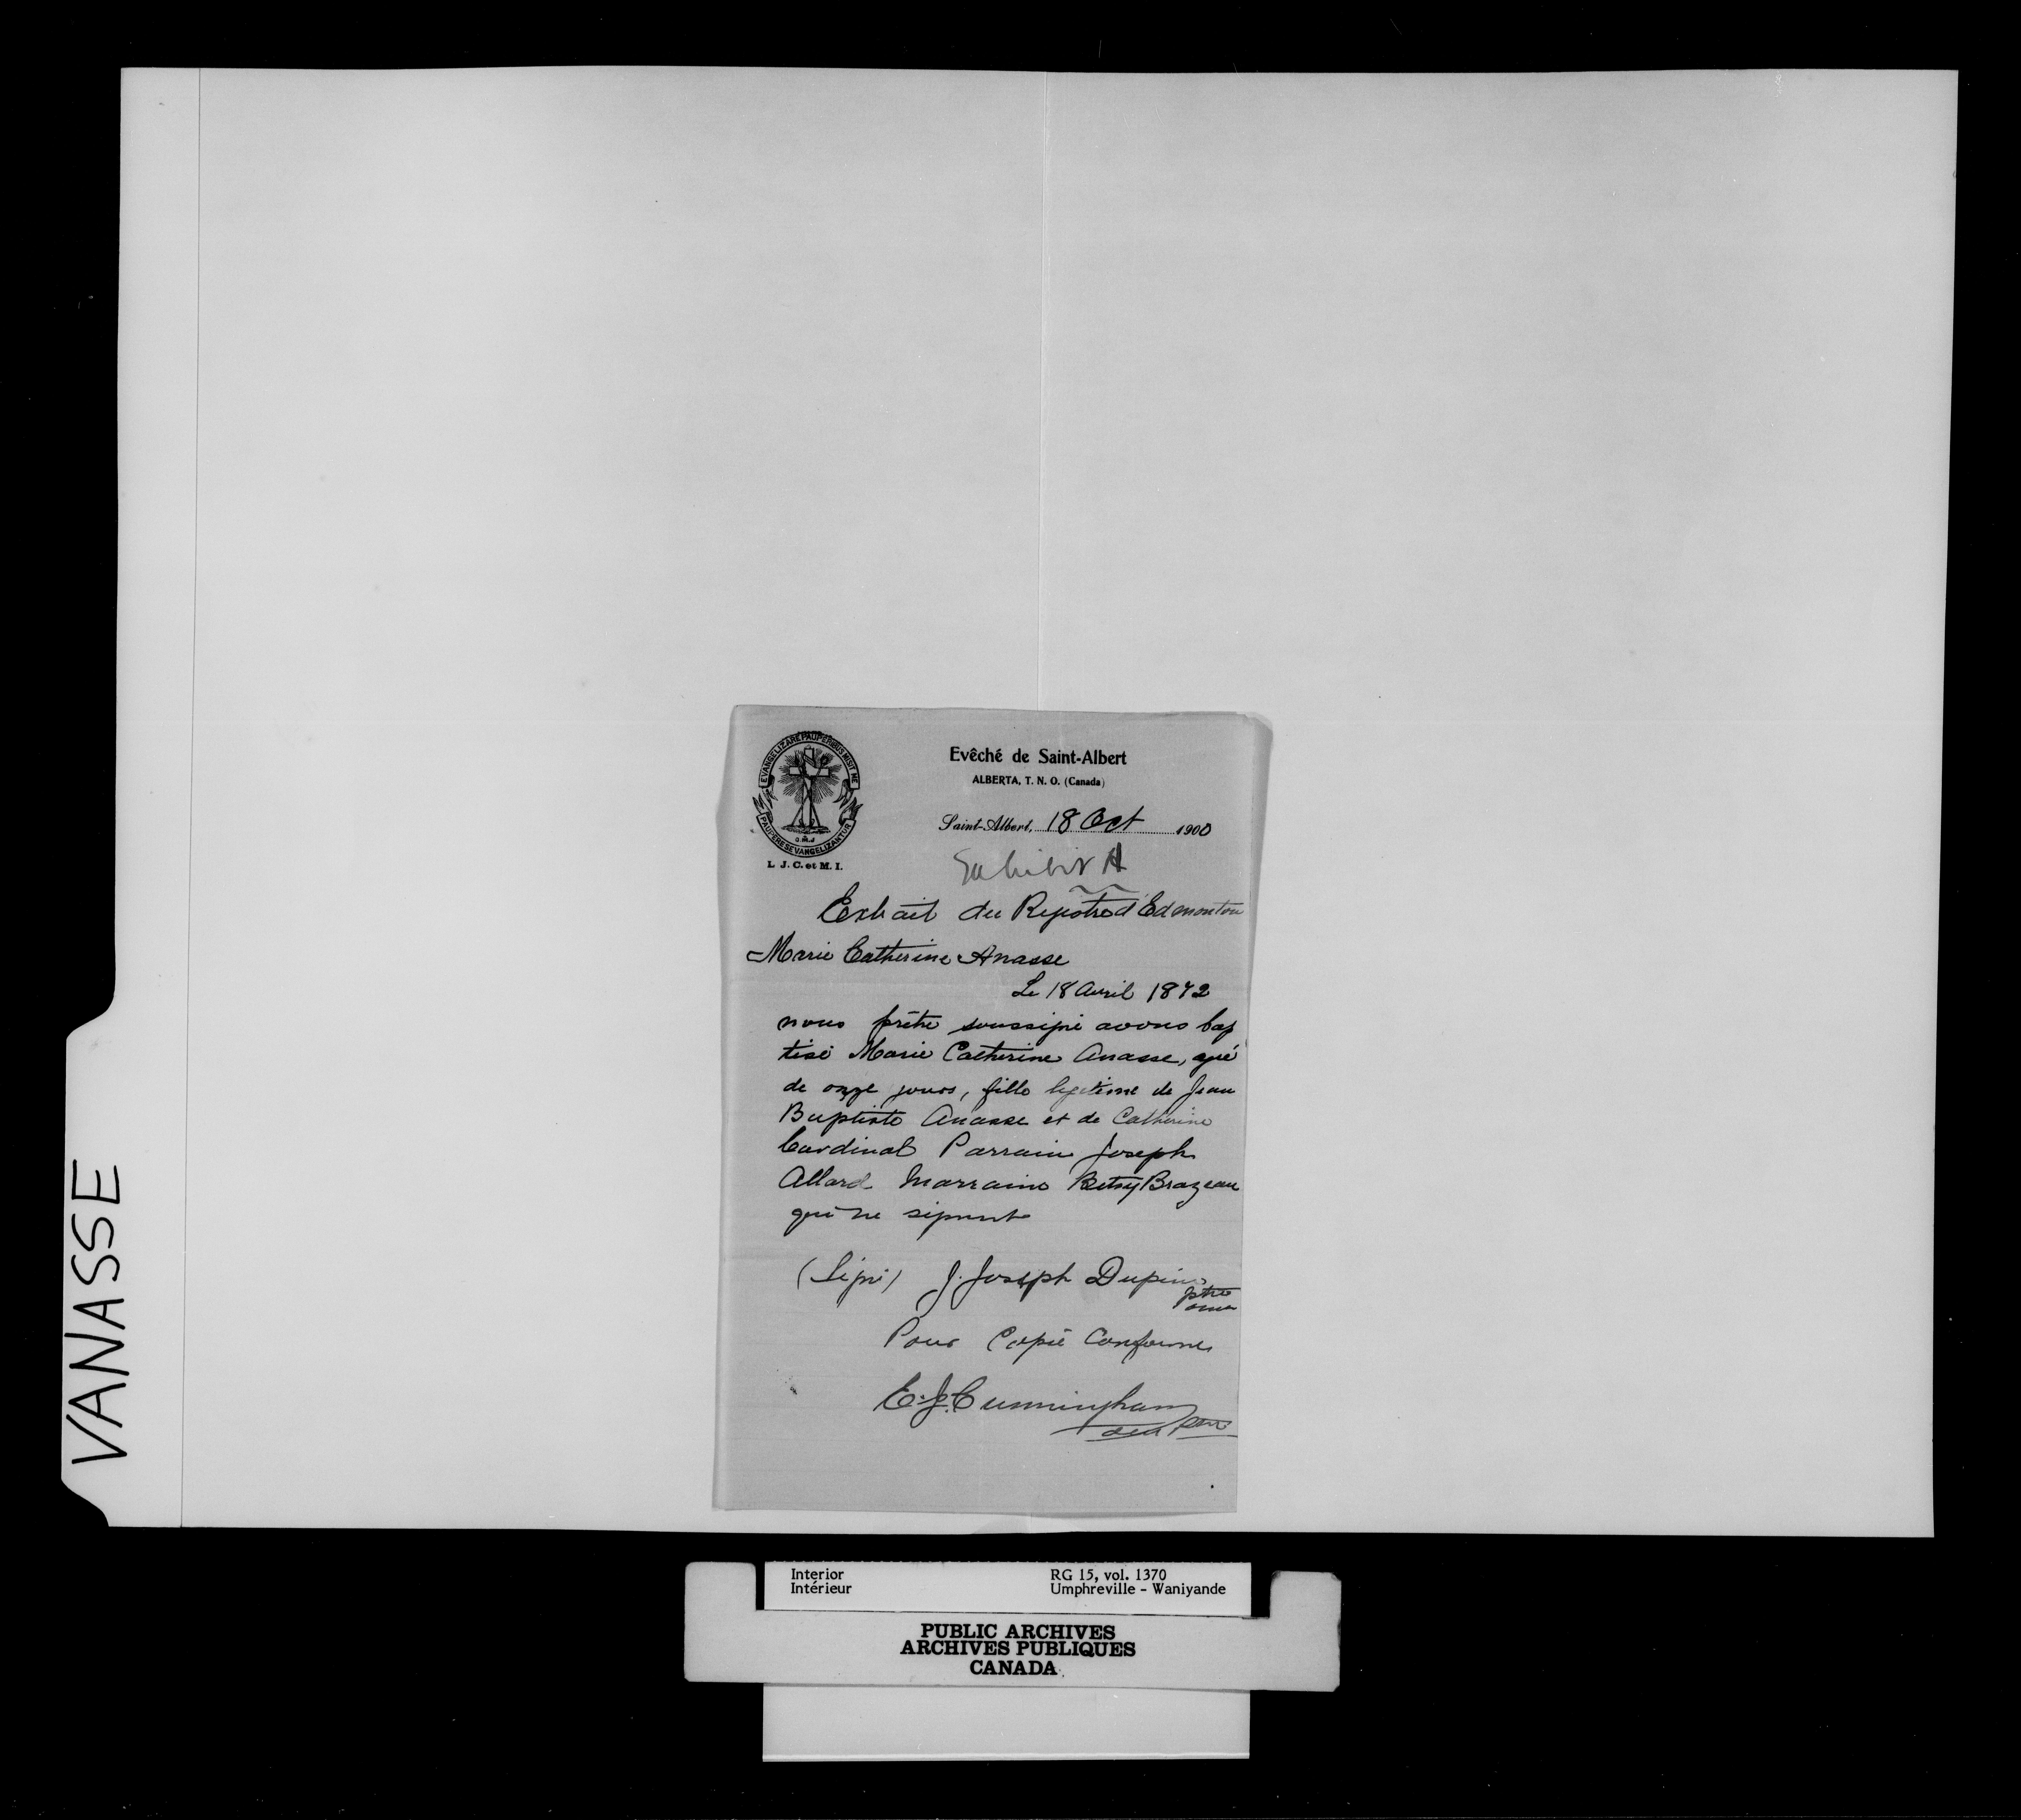 VANASSE
EVANGELIZARE PAUPERIBUS MISIT ME
PAUPERES EVANGELIZANTUR
L. J. C. et M. I.
Evêché de Saint-Albert
ALBERTA, T. N. O. (Canada)
Saint-Albert, 18 Oct 1900
Exhibit A
Extrait du Registre d'Edmonton
Marie Catherine Anasse
Le 18 Avril 1872
nous prêtre soussigné avons bap
tisé Marie Catherine Anasse, agé
de onze jours, fille legitime de Jean
Baptiste Anasse et de Catherine
Cardinal Parrain Joseph
Allard Marraine Betsy Brazeau
qui ne signent
(Signé) J. Joseph Dupin
ptre
omi
Pour Copie Conforme
E. J. Cunningham
Interior
Intérieur
RG 15, vol. 1370
Umphreville - Waniyande
PUBLIC ARCHIVES
ARCHIVES PUBLIQUES
CANADA